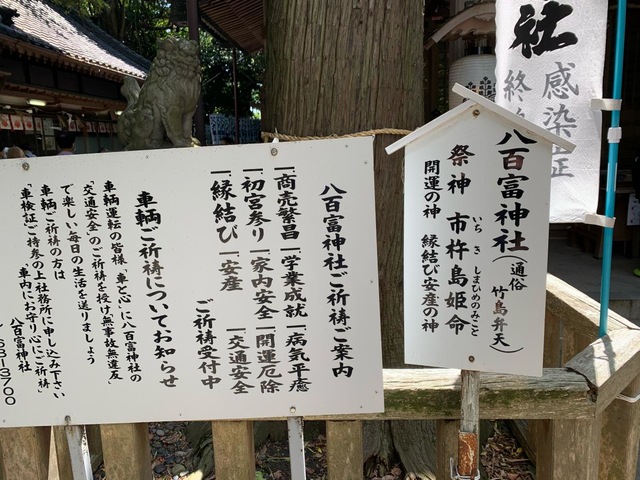 八百富神社(通俗 竹島弁天)
祭神 市杵島姫命
いちきしまひめのみこと
開運の神 縁結び安産の神
八百富神社ご祈祷ご案内
一商売繁昌 一学業成就 一病気平癒
一初宮参り 一家内安全 一開運厄除
一縁結び 一安産 一交通安全
ご祈祷受付中
車輌ご祈祷についてお知らせ
車輌運転の皆様「車と心」に八百富神社の
「交通安全」のご祈祷を授け無事故無違反
で楽しい毎日の生活を送りましょう
車輌ご祈祷の方は
「車検証ご持参の上社務所に申し込み下さい
「車内にお守り心にご祈祷」
八百富神社
68-3700
社
感染症
終